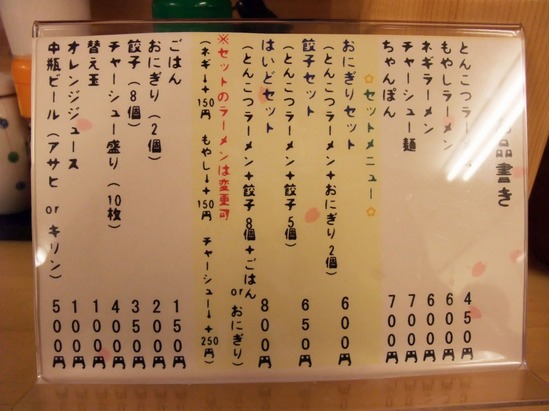 品書き
とんこつラーメン 450円
もやしラーメン 600円
ネギラーメン 600円
チャーシュー麺 700円
ちゃんぽん 700円
✿セットメニュー✿
おにぎりセット 600円
(とんこつラーメン+おにぎり2個)
餃子セット 650円
(とんこつラーメン+餃子5個)
はいどセット 800円
(とんこつラーメン+餃子8個+ごはん or おにぎり)
※セットのラーメンは変更可
(ネギ→+150円 もやし→+150円 チャーシュー→+250円)
ごはん 150円
おにぎり(2個) 200円
餃子(8個) 350円
チャーシュー盛り(10枚) 400円
替え玉 100円
オレンジジュース 100円
中瓶ビール(アサヒ or キリン) 500円